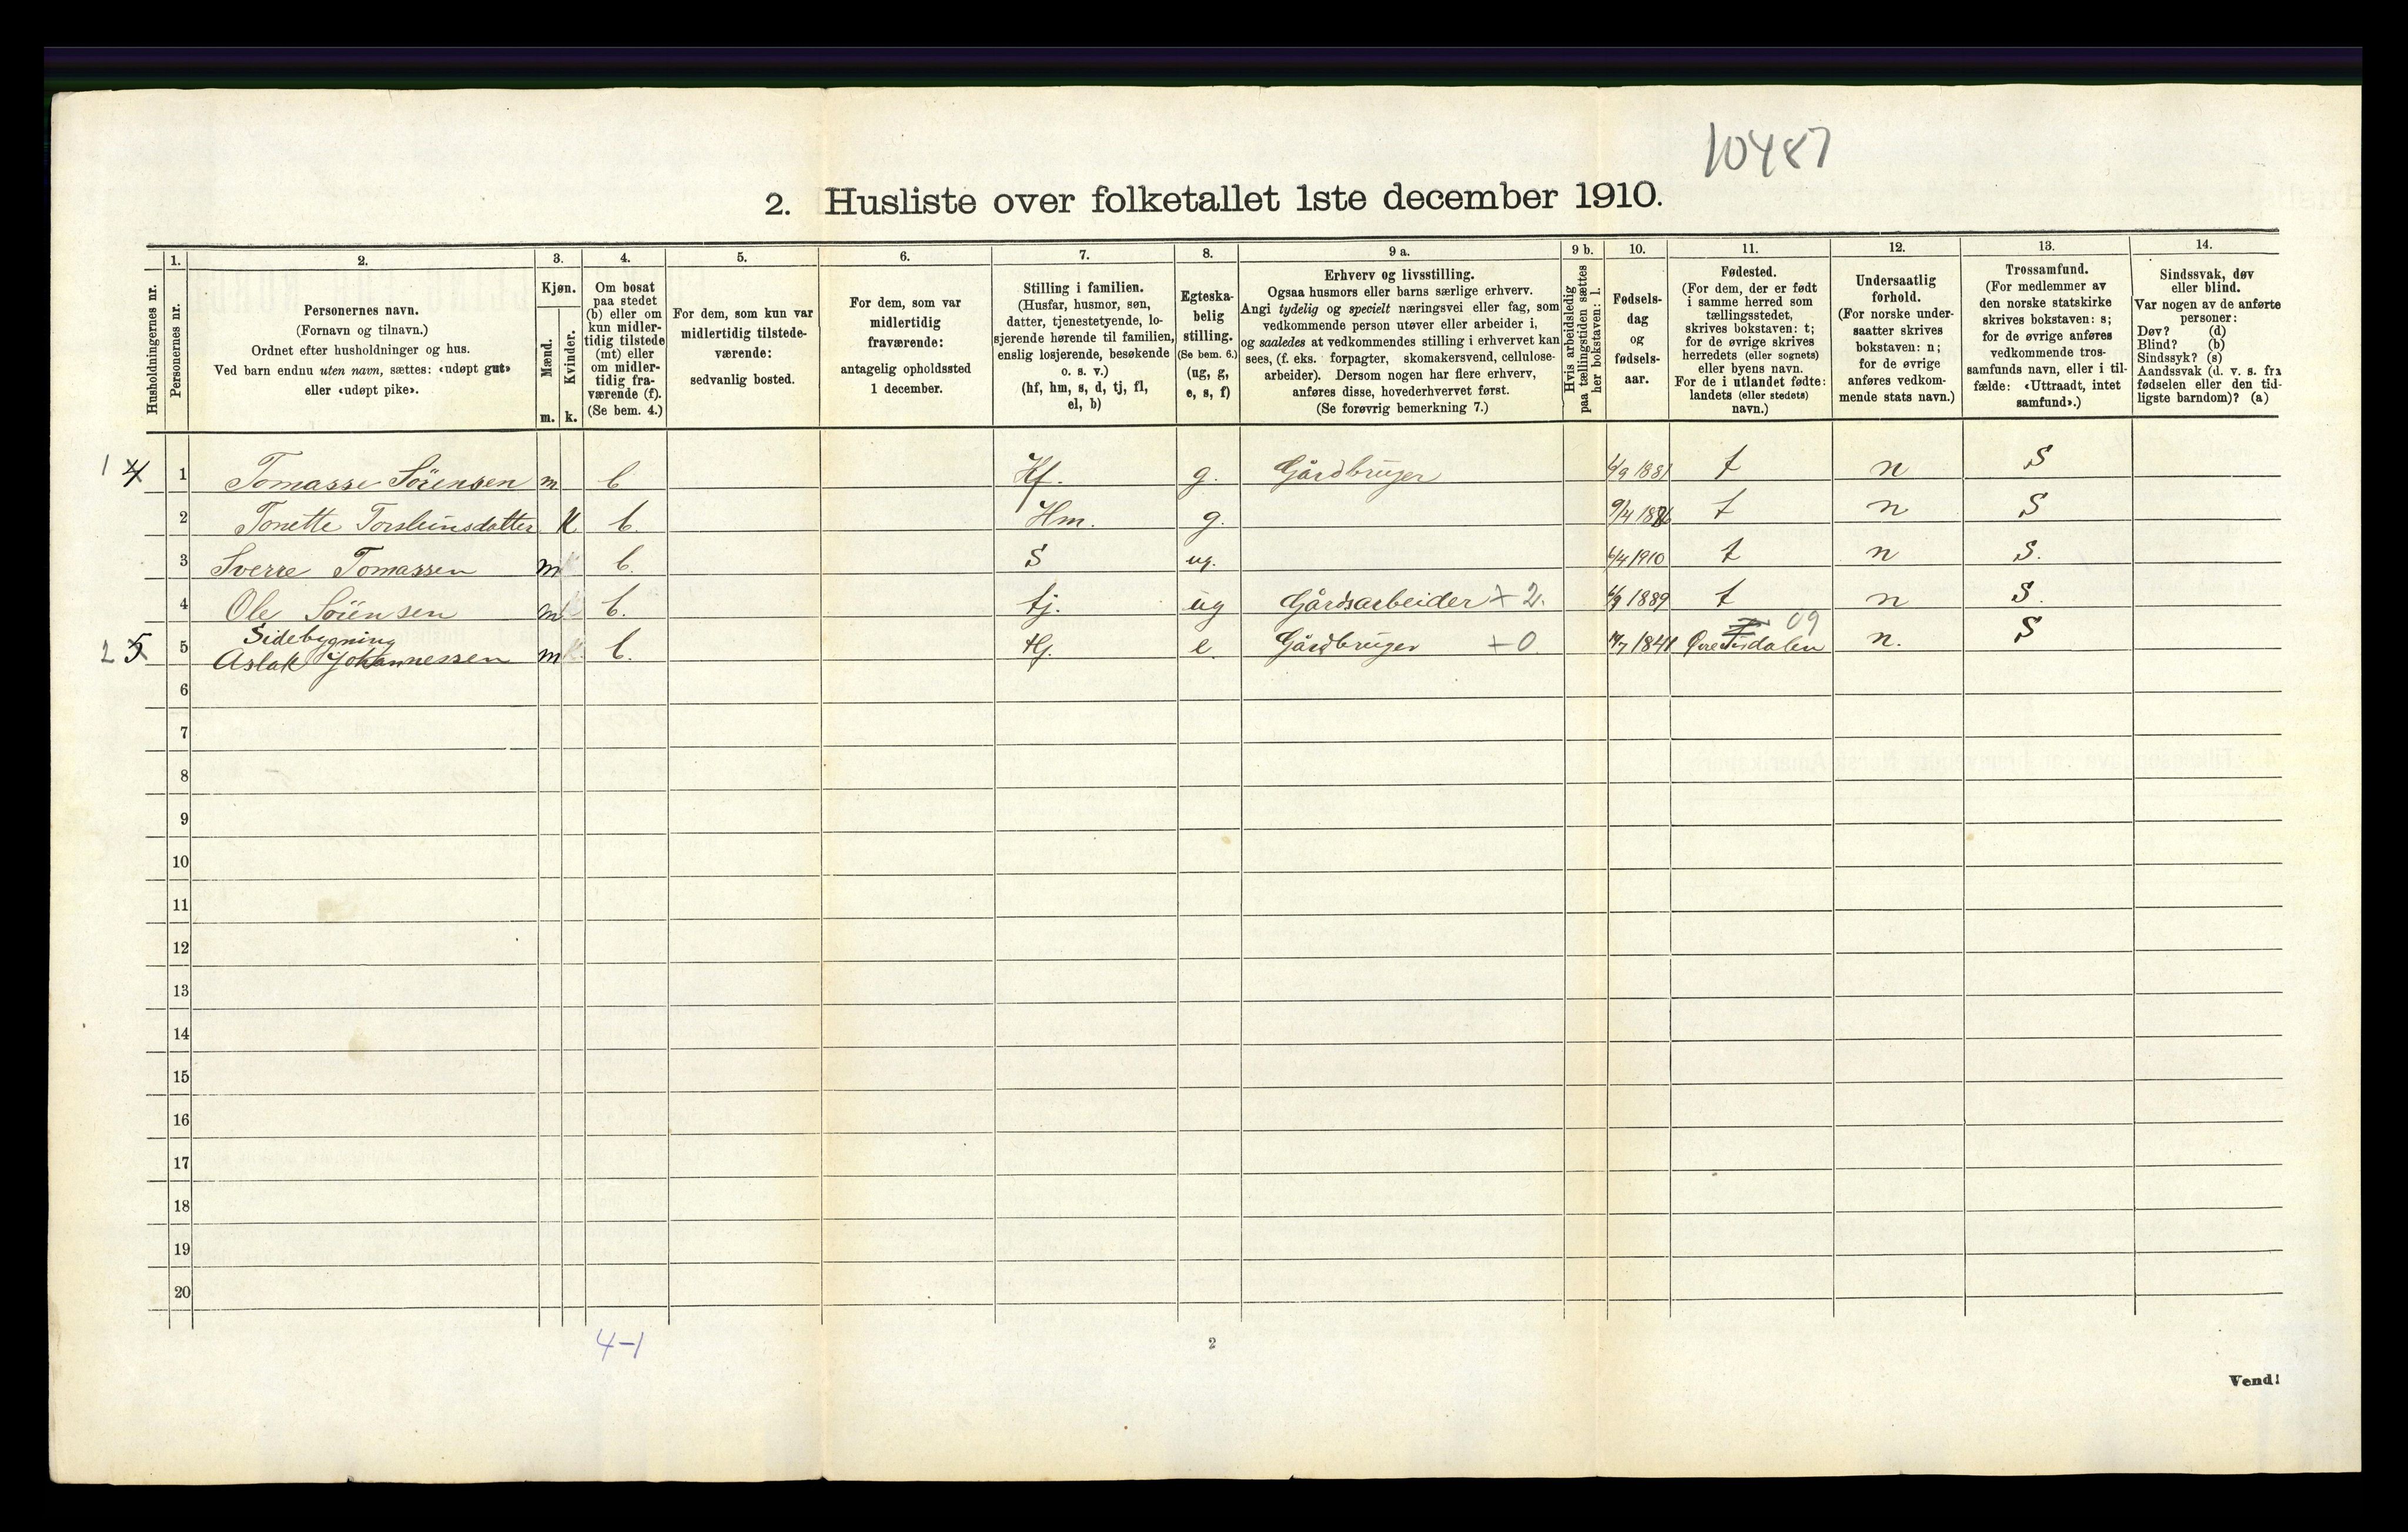 10487
2. Husliste over folketallet 1ste december 1910.
Husholdningernes nr.
1.
Personernes nr.
2.
Personernes navn.
(Fornavn og tilnavn.)
Ordnet efter husholdninger og hus.
Ved barn endnu uten navn, sættes: «udøpt gut»
eller «udøpt pike».
3.
Kjøn.
Mænd.
Kvinder.
m. k.
4.
Om bosat
paa stedet
(b) eller om
kun midler-
tidig tilstede
(mt) eller
om midler-
tidig fra-
værende (f).
(Se bem. 4.)
5.
For dem, som kun var
midlertidig tilstede-
værende:
sedvanlig bosted.
6.
For dem, som var
midlertidig
fraværende:
antagelig opholdssted
1 december.
7.
Stilling i familien.
(Husfar, husmor, søn,
datter, tjenestetyende, lo-
sjerende hørende til familien,
enslig losjerende, besøkende
o. s. v.)
(hf, hm, s, d, tj, fl,
el, b)
8.
Egteska-
belig
stilling.
(Se bem. 6.)
(ug, g,
e, s, f)
9 a.
Erhverv og livsstilling.
Ogsaa husmors eller barns særlige erhverv.
Angi tydelig og specielt næringsvei eller fag, som
vedkommende person utøver eller arbeider i,
og saaledes at vedkommendes stilling i erhvervet kan
sees, (f. eks. forpagter, skomakersvend, cellulose-
arbeider). Dersom nogen har flere erhverv,
anføres disse, hovederhvervet først.
(Se forøvrig bemerkning 7.)
9 b.
Hvis arbeidsledig
paa tællingstiden sættes
her bokstaven: l.
10.
Fødsels-
dag
og
fødsels-
aar.
11.
Fødested.
(For dem, der er født
i samme herred som
tællingsstedet,
skrives bokstaven: t;
for de øvrige skrives
herredets (eller sognets)
eller byens navn.
For de i utlandet fødte:
landets (eller stedets)
navn.)
12.
Undersaatlig
forhold.
(For norske under-
saatter skrives
bokstaven: n;
for de øvrige
anføres vedkom-
mende stats navn.)
13.
Trossamfund.
(For medlemmer av
den norske statskirke
skrives bokstaven: s;
for de øvrige anføres
vedkommende tros-
samfunds navn, eller i til-
fælde: «Uttraadt, intet
samfund».)
14.
Sindssvak, døv
eller blind.
Var nogen av de anførte
personer:
Døv? (d)
Blind? (b)
Sindssyk? (s)
Aandssvak (d. v. s. fra
fødselen eller den tid-
ligste barndom)? (a)
1 4 1 Tomasse Sörensen m b Hf. g. Gårdbruger 1881 t n S
2 Tonette Torsteinsdatter K b. Hm. g. 9/4 1886 t n S
3 Sverre Tomassen m b. S ug. 6/4 1910 t n S.
4 Ole Sörensen m b. tj. ug Gårdsarbeider + 2. 1889 t n S.
Sidebygning 09
2 5 5 Aslak Johannessen m b. Hf. e. Gårdbruger + 0 1841 n. S
6
7
8
9
10
11
12
13
14
15
16
17
18
19
20
4-1
2
Vend!